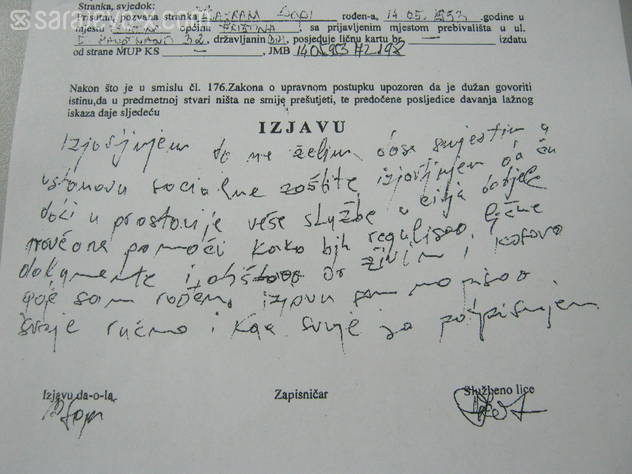 sarajevo-x.com
Stranka, svjedok:
Pristupan, pozvana stranka BAJRAM rođen-a, 14 05. 1953 .godine u
mjestu općini PRIŠTINA, sa prijavljenim mjestom prebivališta u ul.
32, državljanin BiH, posjeduje ličnu kartu br — izdatu
od strane MUP KS — , JMB
Nakon što je u smislu čl. 176.Zakona o upravnom postupku upozoren da je dužan govoriti
istinu,da u predmetnoj stvari ništa ne smije prešutjeti, te predočene posljedice davanja lažnog
iskaza daje sljedeću
IZJAVU
Izjavljujem da ne želim da se smjestim u
ustanovu socialne zaštite izjavljujem da ću
doći u prostorije vaše službe u cilju dobijele
novčane pomoći kako bih regulisao lične
dokumente i otišao da živim i Kosovo
gdje sam rođen, izjavu sam napisao
svoje ručno i kao svoje ja potpisujem
Izjavu da-o-la Zapisničar Službeno lice